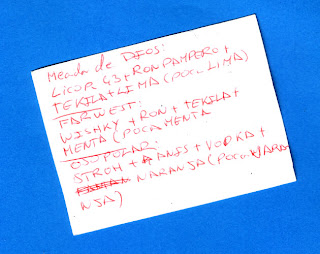 Meada de DIOS:
LICOR 43 + RON PAMPERO +
TEKILA + LIMA (POCA LIMA)
FARWEST:
WISHKY + RON + TEKILA +
MENTA (POCA MENTA
OSO POLAR:
STROH + ANIS + VODKA +
NARANJA (POCA NARA
NJA)